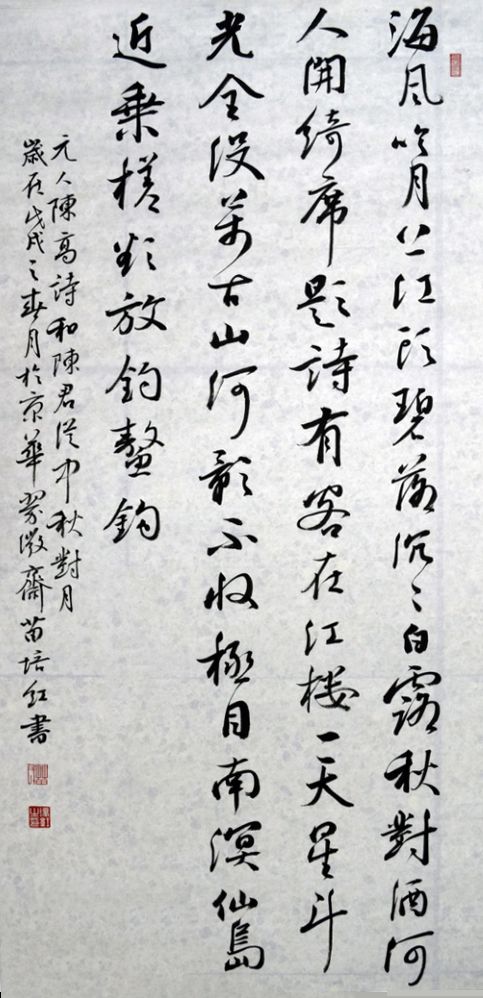 海風吹月上江頭碧落沉々白露秋對酒何
人開綺席題詩有客在江樓一天星斗
光全沒萬古山河影不收極目南溟仙島
近乘槎欲放釣鰲鈎
元人陳高詩和陳君從中秋對月
歲在戊戌之春月於京華翠微齋苗培紅書